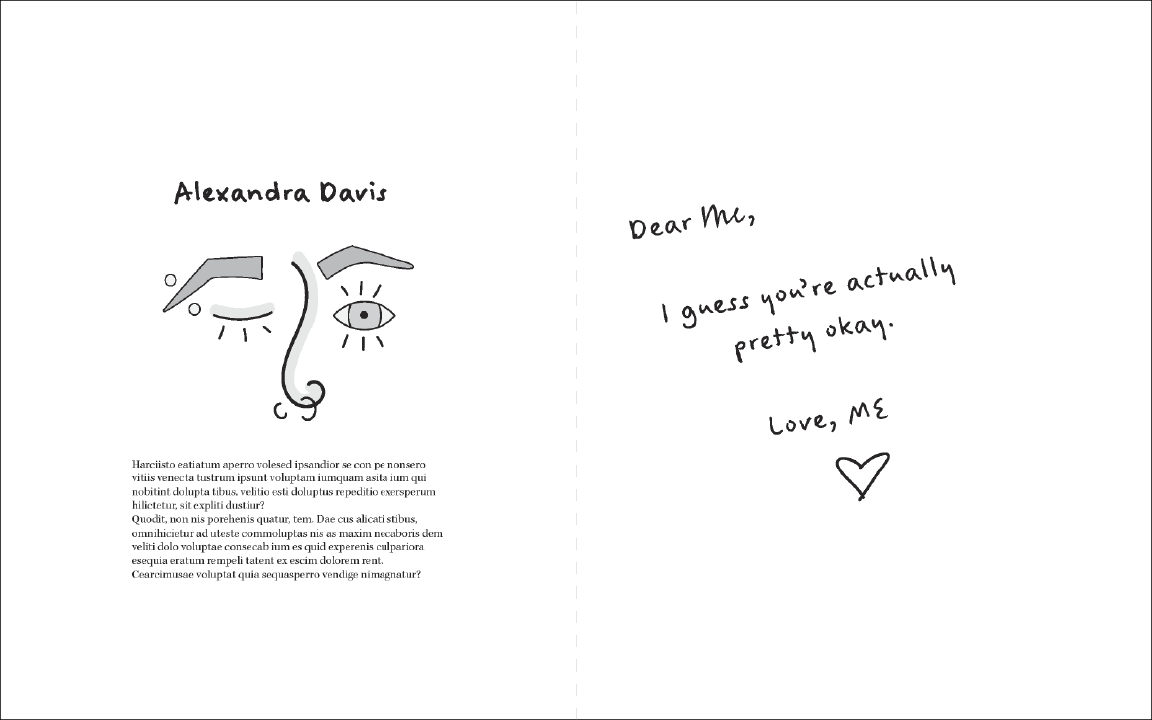 Alexandra Davis
Harciisto eatiatum aperro volesed ipsandior se con pe nonsero
vitiis venecta tustrum ipsunt voluptam iumquam asita ium qui
nobitint dolupta tibus, velitio esti doluptus repeditio exersperum
hilictetur, sit expliti dustiur?
Quodit, non nis porehenis quatur, tem. Dae cus alicati stibus,
omnihicietur ad uteste commoluptas nis as maxim necaboris dem
veliti dolo voluptae consecab ium es quid experenis culpariora
esequia eratum rempeli tatent ex escim dolorem rent.
Cearcimusae voluptat quia sequasperro vendige nimagnatur?
Dear Me,
I guess you're actually
pretty okay.
Love, ME